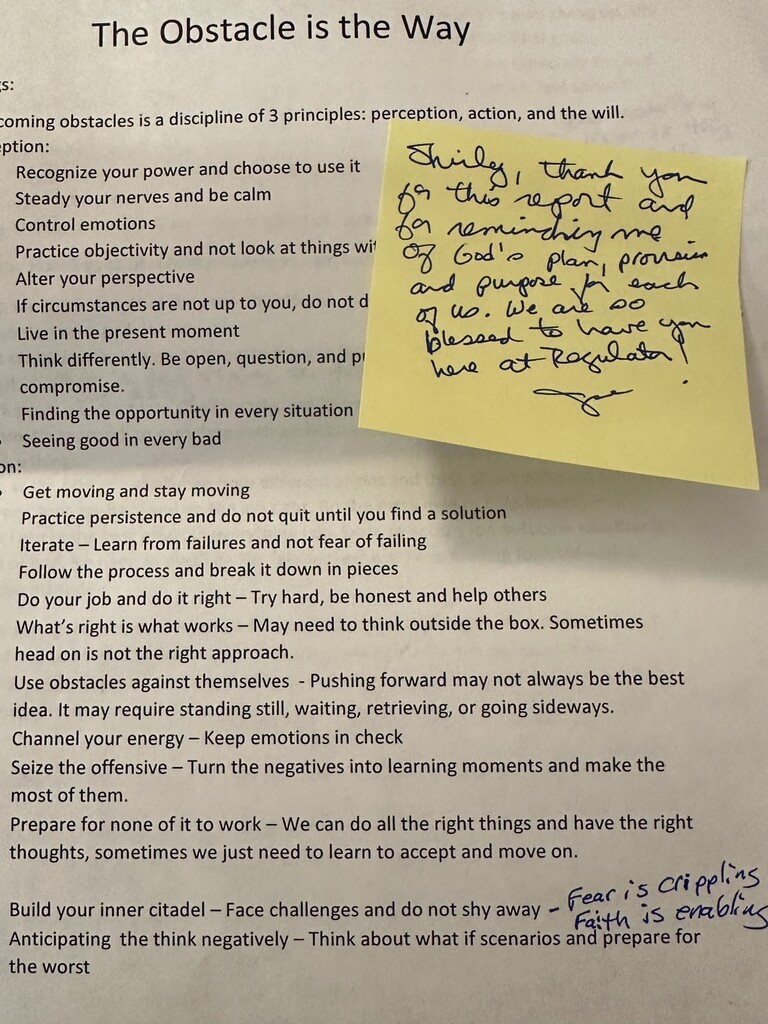 The Obstacle is the Way
s:
coming obstacles is a discipline of 3 principles: perception, action, and the will.
ption:
Recognize your power and choose to use it
Steady your nerves and be calm
Control emotions
Practice objectivity and not look at things wit
Alter your perspective
If circumstances are not up to you, do not d
Live in the present moment
Think differently. Be open, question, and p
compromise.
Finding the opportunity in every situation
Seeing good in every bad
Shirley, thank you
for this report and
for reminding me
of God's plan, provision
and purpose for each
of us. We are so
blessed to have you
here at Regulator!
on:
Get moving and stay moving
Practice persistence and do not quit until you find a solution
Iterate – Learn from failures and not fear of failing
Follow the process and break it down in pieces
Do your job and do it right – Try hard, be honest and help others
What's right is what works – May need to think outside the box. Sometimes
head on is not the right approach.
Use obstacles against themselves - Pushing forward may not always be the best
idea. It may require standing still, waiting, retrieving, or going sideways.
Channel your energy – Keep emotions in check
Seize the offensive – Turn the negatives into learning moments and make the
most of them.
Prepare for none of it to work – We can do all the right things and have the right
thoughts, sometimes we just need to learn to accept and move on.
Build your inner citadel – Face challenges and do not shy away - Fear is crippling
Faith is enabling
Anticipating the think negatively – Think about what if scenarios and prepare for
the worst